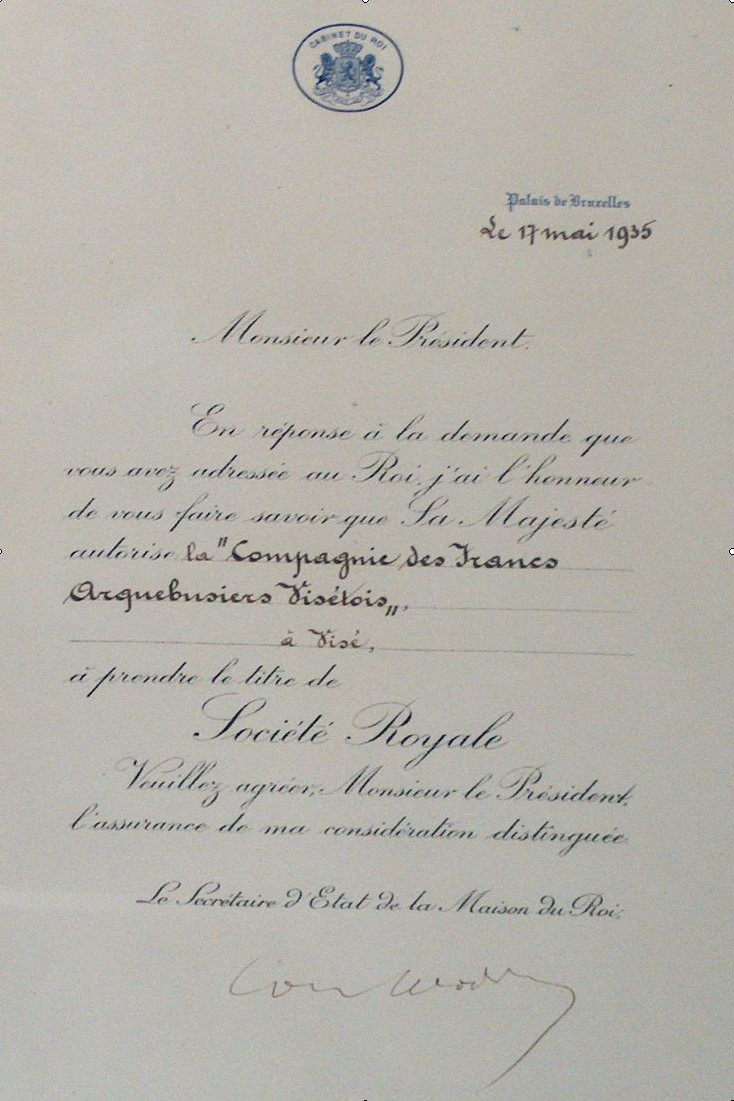 CABINET DU ROI
Palais de Bruxelles
Le 17 mai 1935
Monsieur le Président.
En réponse à la demande que
vous avez adressée au Roi, j'ai l'honneur
de vous faire savoir que Sa Majesté
autorise la "Compagnie des Francs
Arquebusiers Visétois",
à Visé,
à prendre le titre de
Société Royale
Veuillez agréer, Monsieur le Président,
l'assurance de ma considération distinguée
Le Secrétaire d'Etat de la Maison du Roi.